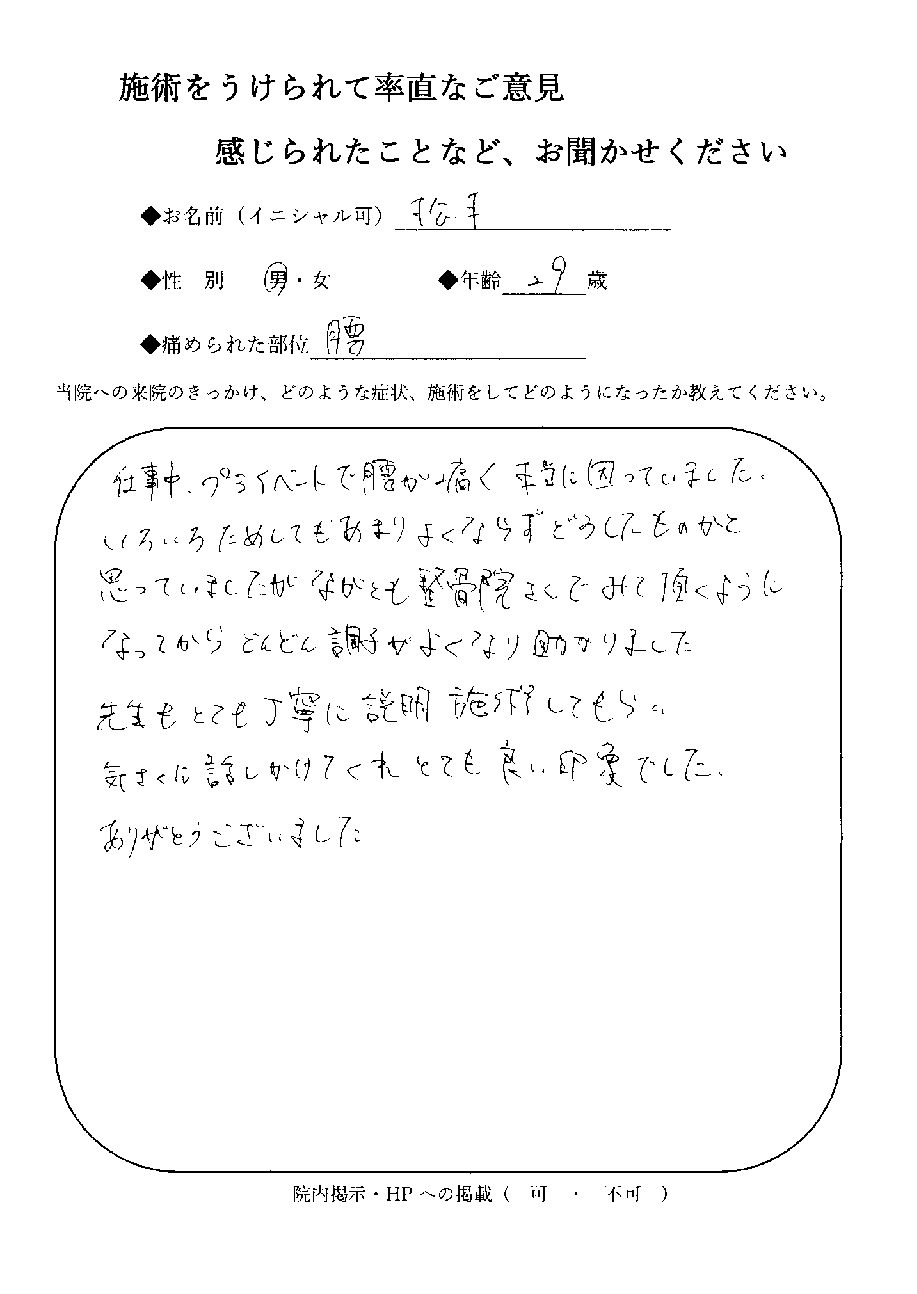 施術をうけられて率直なご意見
感じられたことなど、お聞かせください
◆お名前（イニシャル可）
◆性 別 男・女 ◆年齢 29 歳
◆痛められた部位 腰
当院への来院のきっかけ、どのような症状、施術をしてどのようになったか教えてください。
仕事中、プライベートで腰が痛く本当に困っていました。
いろいろためしてもあまりよくならずどうしたものかと
思っていましたがながとも整骨院さんでみて頂くように
なってからどんどん調子がよくなり助かりました
先生もとても丁寧に説明 施術してもらい
気さくに話しかけてくれとても良い印象でした。
ありがとうございました
院内掲示・HPへの掲載（ 可 ・ 不可 ）